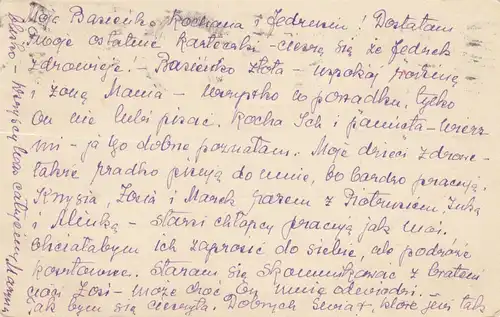 Moje Basieńko kochana i Jędrusiu! Dostałam
moje ostatnie karteczki – cieszę się że Jędrek
zdrowieje! – Basieńko złota – uspokój rodzinę
i żonę Mania – wszystko w porządku, tylko
On nie lubi pisać. Kocha Ich i pamięta – wierz
mi – ja go dobrze poznałam. Moje dzieci zdrowe –
także rzadko piszą do mnie, bo bardzo pracują.
Krzysia, Zosia i Marek razem z Piotrusiem,
i Alinką – starsi chłopcy pracują jak
chciałabym ich zaprosić do siebie, ale podróże
kosztowne. Staram się skomunikować z bratem
Zosi – może choć On mnie odwiedzi.
Jak bym się cieszyła. Dobrych Świąt, które są tak
blisko – Wszystkich Was całuję Mania